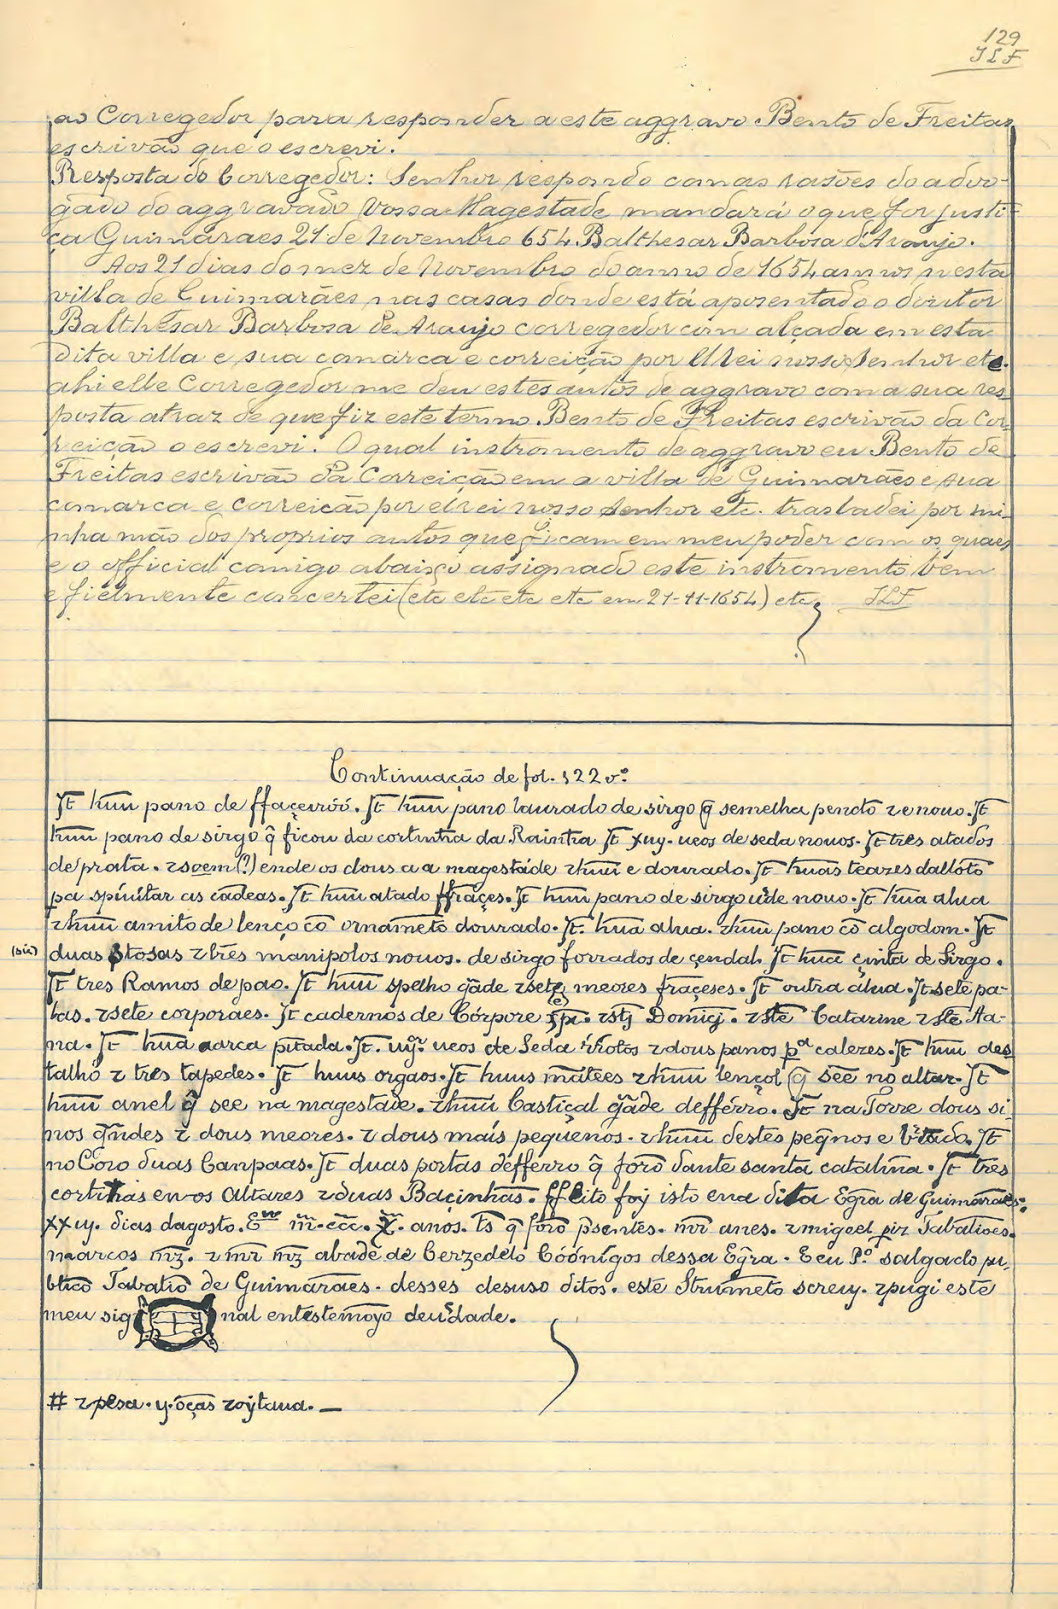 129
JLF
ao Corregedor para responder a este aggravo. Bento de Freitas
escrivão que o escrevi.
Resposta do Corregedor: Senhor respondo com as rasões do advo-
gado do aggravado Vossa Magestade mandará o que for justi-
ça Guimarães 21 de Novembro 654. Balthesar Barbosa d'Araujo.
Aos 21 dias do mez de Novembro do anno de 1654 annos nesta
villa de Guimarães nas casas donde está aposentado o doutor
Balthesar Barbosa de Araujo corregedor com alçada em esta
dita villa e sua comarca e correição por ElRei nosso Senhor etc.
ahi elle Corregedor me deu estes autos de aggravo com a sua res-
posta atraz de que fiz este termo. Bento de Freitas escrivão da Cor-
reição o escrevi. O qual instromento de aggravo eu Bento de
Freitas escrivão da Correição em a villa de Guimarães e sua
comarca e correição por elrei nosso Senhor etc. trasladei por mi-
nha mão dos proprios autos que ficam em meu poder com os quaes
e o official comigo abaixo assignado este instromento bem
e fielmente concertei (etc etc etc etc em 21-11-1654) etc. JLF
Continuação de fol. 122 vº.
Jt hũu pano de ffaçeiróó. Jt hũu pano laurado de sirgo q̃ semelha pencto ⁊ e nouo. Jt
hũu pano de sirgo q̃ ficou da cortinha da Rainha Jt xuy. ueos de seda nouos. Jt três atados
de prata. ⁊ soem (?) ende os dous a a magestade ⁊ hũu e dourado. Jt huas teazes dalloto
pa spiuitar as cãdeas. Jt hũu atado ffrãçes. Jt hũu pano de sirgo uerde nouo. Jt hũa alua
⁊ hũu amito de lenço cõ ornamẽto dourado. Jt. hũa alua. ⁊ hũu pano cõ algodom. Jt
(sic) duas stosas ⁊ três manipolos nouos. de sirgo forrados de çendal. Jt hũa çinta de Sirgo.
Jt tres Ramos de pao. Jt hũu spelho grãde ⁊ sete meores frãçeses. Jt outra alua. Jt sete pa-
las. ⁊ sete corporaes. Jt cadernos de Córpore xp̃i. ⁊ stj Domĩcj. ⁊ ste Catarine ⁊ ste An-
na. Jt hũa arca pĩtada. Jt. uyr. ueos de Seda ⁊ dous panos pa calezes. Jt hũu des
talho ⁊ três tapedes. Jt huus orgãos. Jt huus mãtees ⁊ hũu lençol q̃ sẽe no altar. Jt
hũu anel q̃ see na magestade. ⁊ hũu Castiçal grãde defférro. Jt na Torre dous si-
nos grãndes ⁊ dous meores. ⁊ dous mais pequenos. ⁊ hũu destes peq̃nos e britado. Jt
no Coro duas Canpaas. Jt duas portas defferro q̃ forõ dante santa catalina. Jt três
cortinas en os altares ⁊ duas Baçinhas. ffeito foy isto en a dita Egr̃a de Guimarães.
xxuy. dias dagosto. Ero m̃. ccc. x̃. anos. ts q̃ forõ p̃sentes. mr̃ anes. ⁊ migeel pir̃ Tabaliões.
marcos mz̃. ⁊ mr̃ mz̃ abade de Cerzedelo Cóónigos dessa Egr̃a. E eu Pº. salgado pu-
blico Tabaliõ de Guimarães. desses desuso ditos. este strumẽto screuy. ⁊ pugi este
meu sig nal entestemoyo deuerdade.
# ⁊ pesa. y. õças ⁊ oytaua. —